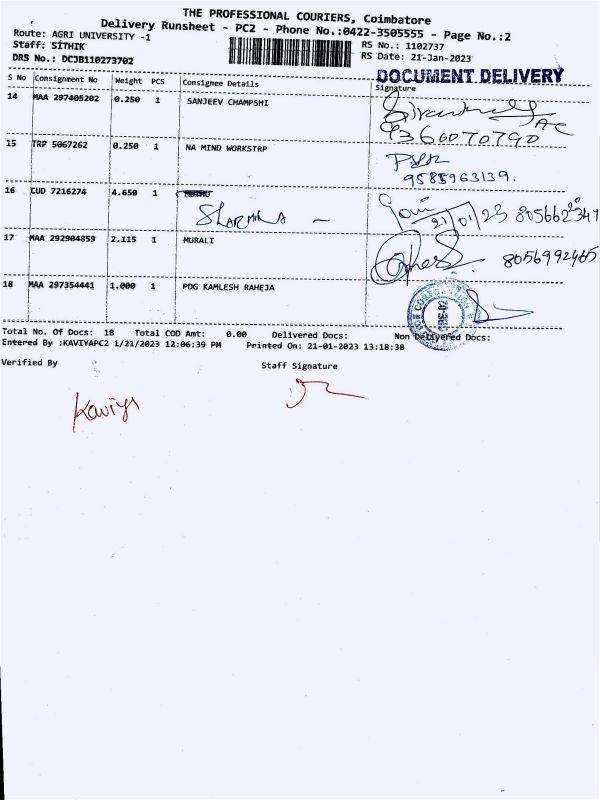 THE PROFESSIONAL COURIERS, Coimbatore
Delivery Runsheet - PC2 - Phone No.:0422-3505555 - Page No.:2
Route: AGRI UNIVERSITY -1
RS No.: 1102737
Staff: SITHIK
RS Date: 21-Jan-2023
DRS No.: DCJB110273702
DOCUMENT DELIVERY
S No Consignment No Weight PCS Consignee Details Signature
14 MAA 297405202 0.250 1 SANJEEV CHAMPSHI
9360070790
15 TRP 5067262 0.250 1 NA MIND WORKSTRP
9585963139.
16 CUD 7216274 4.650 1
SHARMILA -
21/01/23
17 MAA 292904859 2.115 1 MURALI
8056992465
18 MAA 297354441 1.000 1 PDG KAMLESH RAHEJA
Total No. Of Docs: 18 Total COD Amt: 0.00 Delivered Docs: Non Delivered Docs:
Entered By :KAVIYAPC2 1/21/2023 12:06:39 PM Printed On: 21-01-2023 13:18:38
Verified By Staff Signature
Kaviya